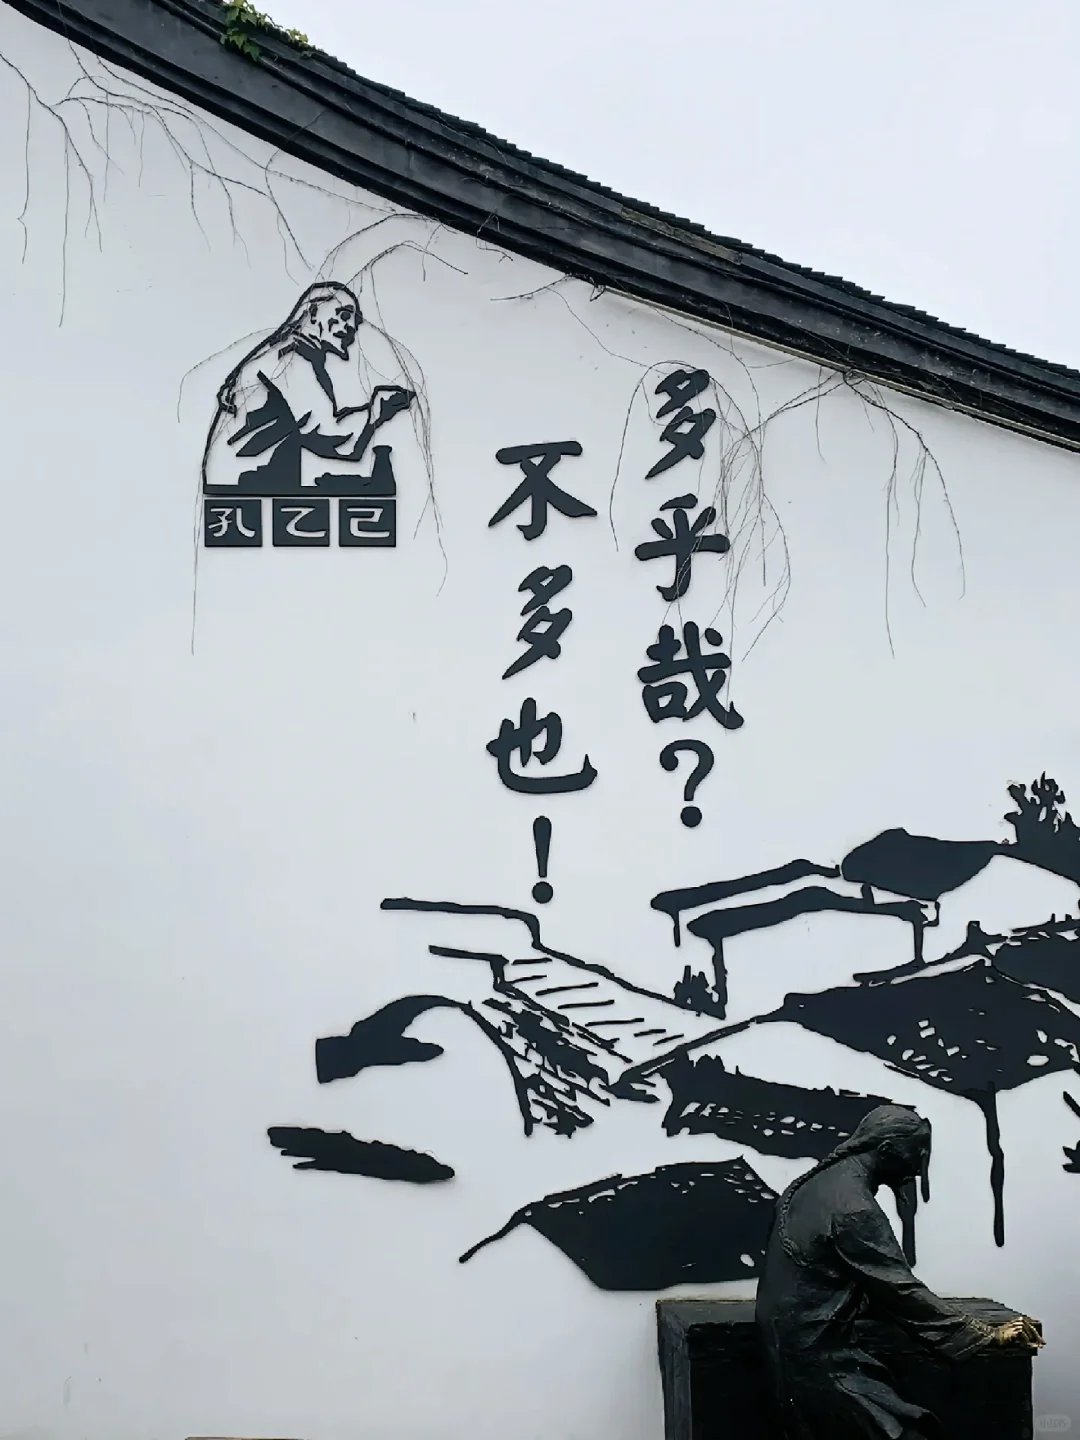 多乎哉？
不多也！
孔乙己